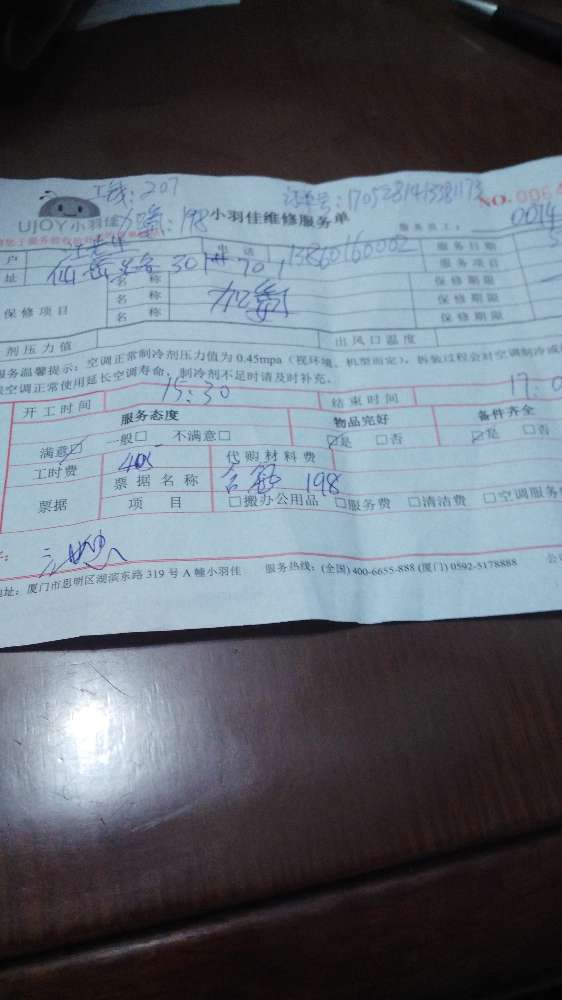 工钱：207 订单号：170528141338173 NO.0064
UJOY小羽佳 加氟：198 小羽佳维修服务单 服务员工： 0014
户 王先生 电话 13860160002 服务日期
址 301 服务项目
保修项目 名称 加氟 保修期限
名称 保修期限
名称 保修期限
剂压力值 出风口温度
服务温馨提示：空调正常制冷剂压力值为 0.45mpa（视环境、机型而定），拆装过程会对空调制冷
空调正常使用延长空调寿命，制冷剂不足时请及时补充。
开工时间 15:30 结束时间 17:0
服务态度 物品完好 备件齐全
满意☑ 一般□ 不满意□ ☑是 □否 ☑是 □否
工时费 405 代购材料费
票据 票据名称 198
项目 □搬办公用品 □服务费 □清洁费 □空调服务
地址：厦门市思明区湖滨东路 319 号 A 幢小羽佳 服务热线：(全国) 400-6655-888 (厦门) 0592-5178888